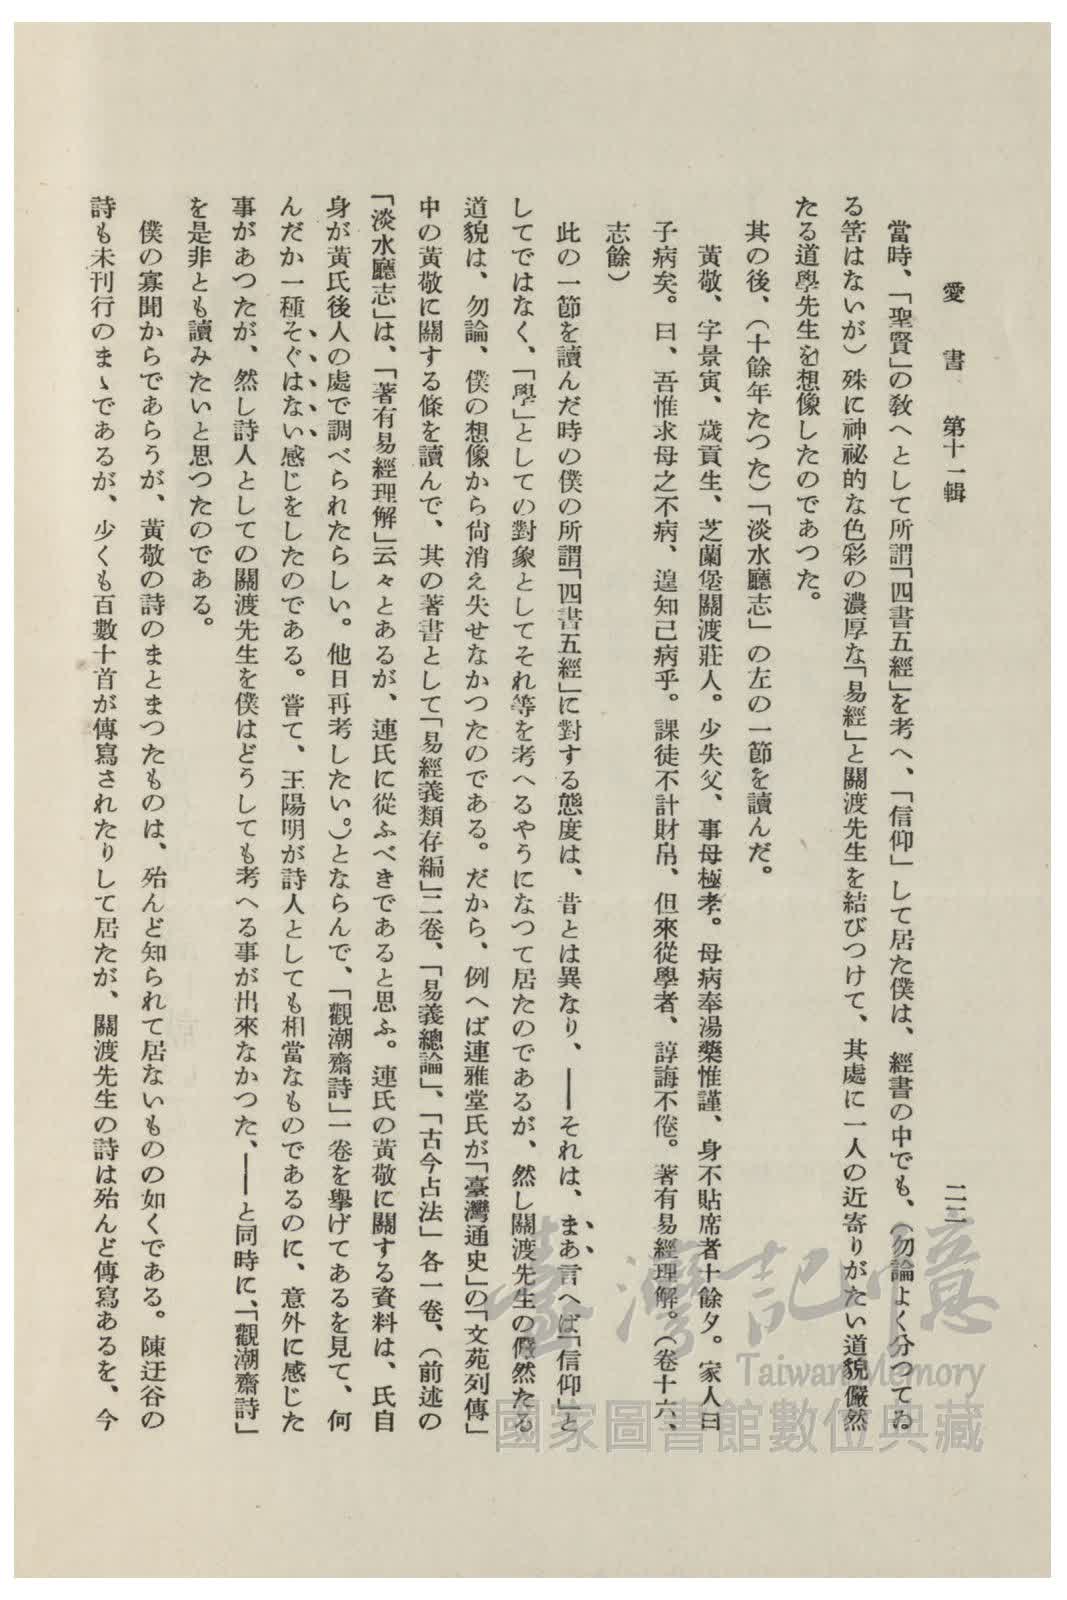 愛書 第十一輯 二二
當時、「聖賢」の敎へとして所謂「四書五經」を考へ、「信仰」して居た僕は、經書の中でも、（勿論よく分つてゐ
る筈はないが）殊に神祕的な色彩の濃厚な「易經」と關渡先生を結びつけて、其處に一人の近寄りがたい道貌儼然
たる道學先生を想像したのであつた。
其の後、（十餘年たつた）「淡水廳志」の左の一節を讀んだ。
黃敬、字景寅、歲貢生、芝蘭堡關渡莊人。少失父、事母極孝。母病奉湯藥惟謹、身不貼席者十餘夕。家人曰
子病矣。曰、吾惟求母之不病、遑知己病乎。課徒不計財帛、但來從學者、諄誨不倦。著有易經理解。（卷十六、
志餘）
此の一節を讀んだ時の僕の所謂「四書五經」に對する態度は、昔とは異なり、――それは、まあ言へば「信仰」と
してではなく、「學」としての對象としてそれ等を考へるやうになつて居たのであるが、然し關渡先生の儼然たる
道貌は、勿論、僕の想像から尙消え失せなかつたのである。だから、例へば連雅堂氏が「臺灣通史」の「文苑列傳」
中の黃敬に關する條を讀んで、其の著書として「易經義類存編」二卷、「易義總論」、「古今占法」各一卷、（前述の
「淡水廳志」は、「著有易經理解」云々とあるが、連氏に從ふべきであると思ふ。連氏の黃敬に關する資料は、氏自
身が黃氏後人の處で調べられたらしい。他日再考したい。）とならんで、「觀潮齋詩」一卷を擧げてあるを見て、何
んだか一種そぐはない感じをしたのである。嘗て、王陽明が詩人としても相當なものであるのに、意外に感じた
事があつたが、然し詩人としての關渡先生を僕はどうしても考へる事が出來なかつた、――と同時に、「觀潮齋詩」
を是非とも讀みたいと思つたのである。
僕の寡聞からであらうが、黃敬の詩のまとまつたものは、殆んど知られて居ないものの如くである。陳迂谷の
詩も未刊行のまゝであるが、少くも百數十首が傳寫されたりして居たが、關渡先生の詩は殆んど傳寫あるを、今
臺灣記憶
Taiwan Memory
國家圖書館數位典藏